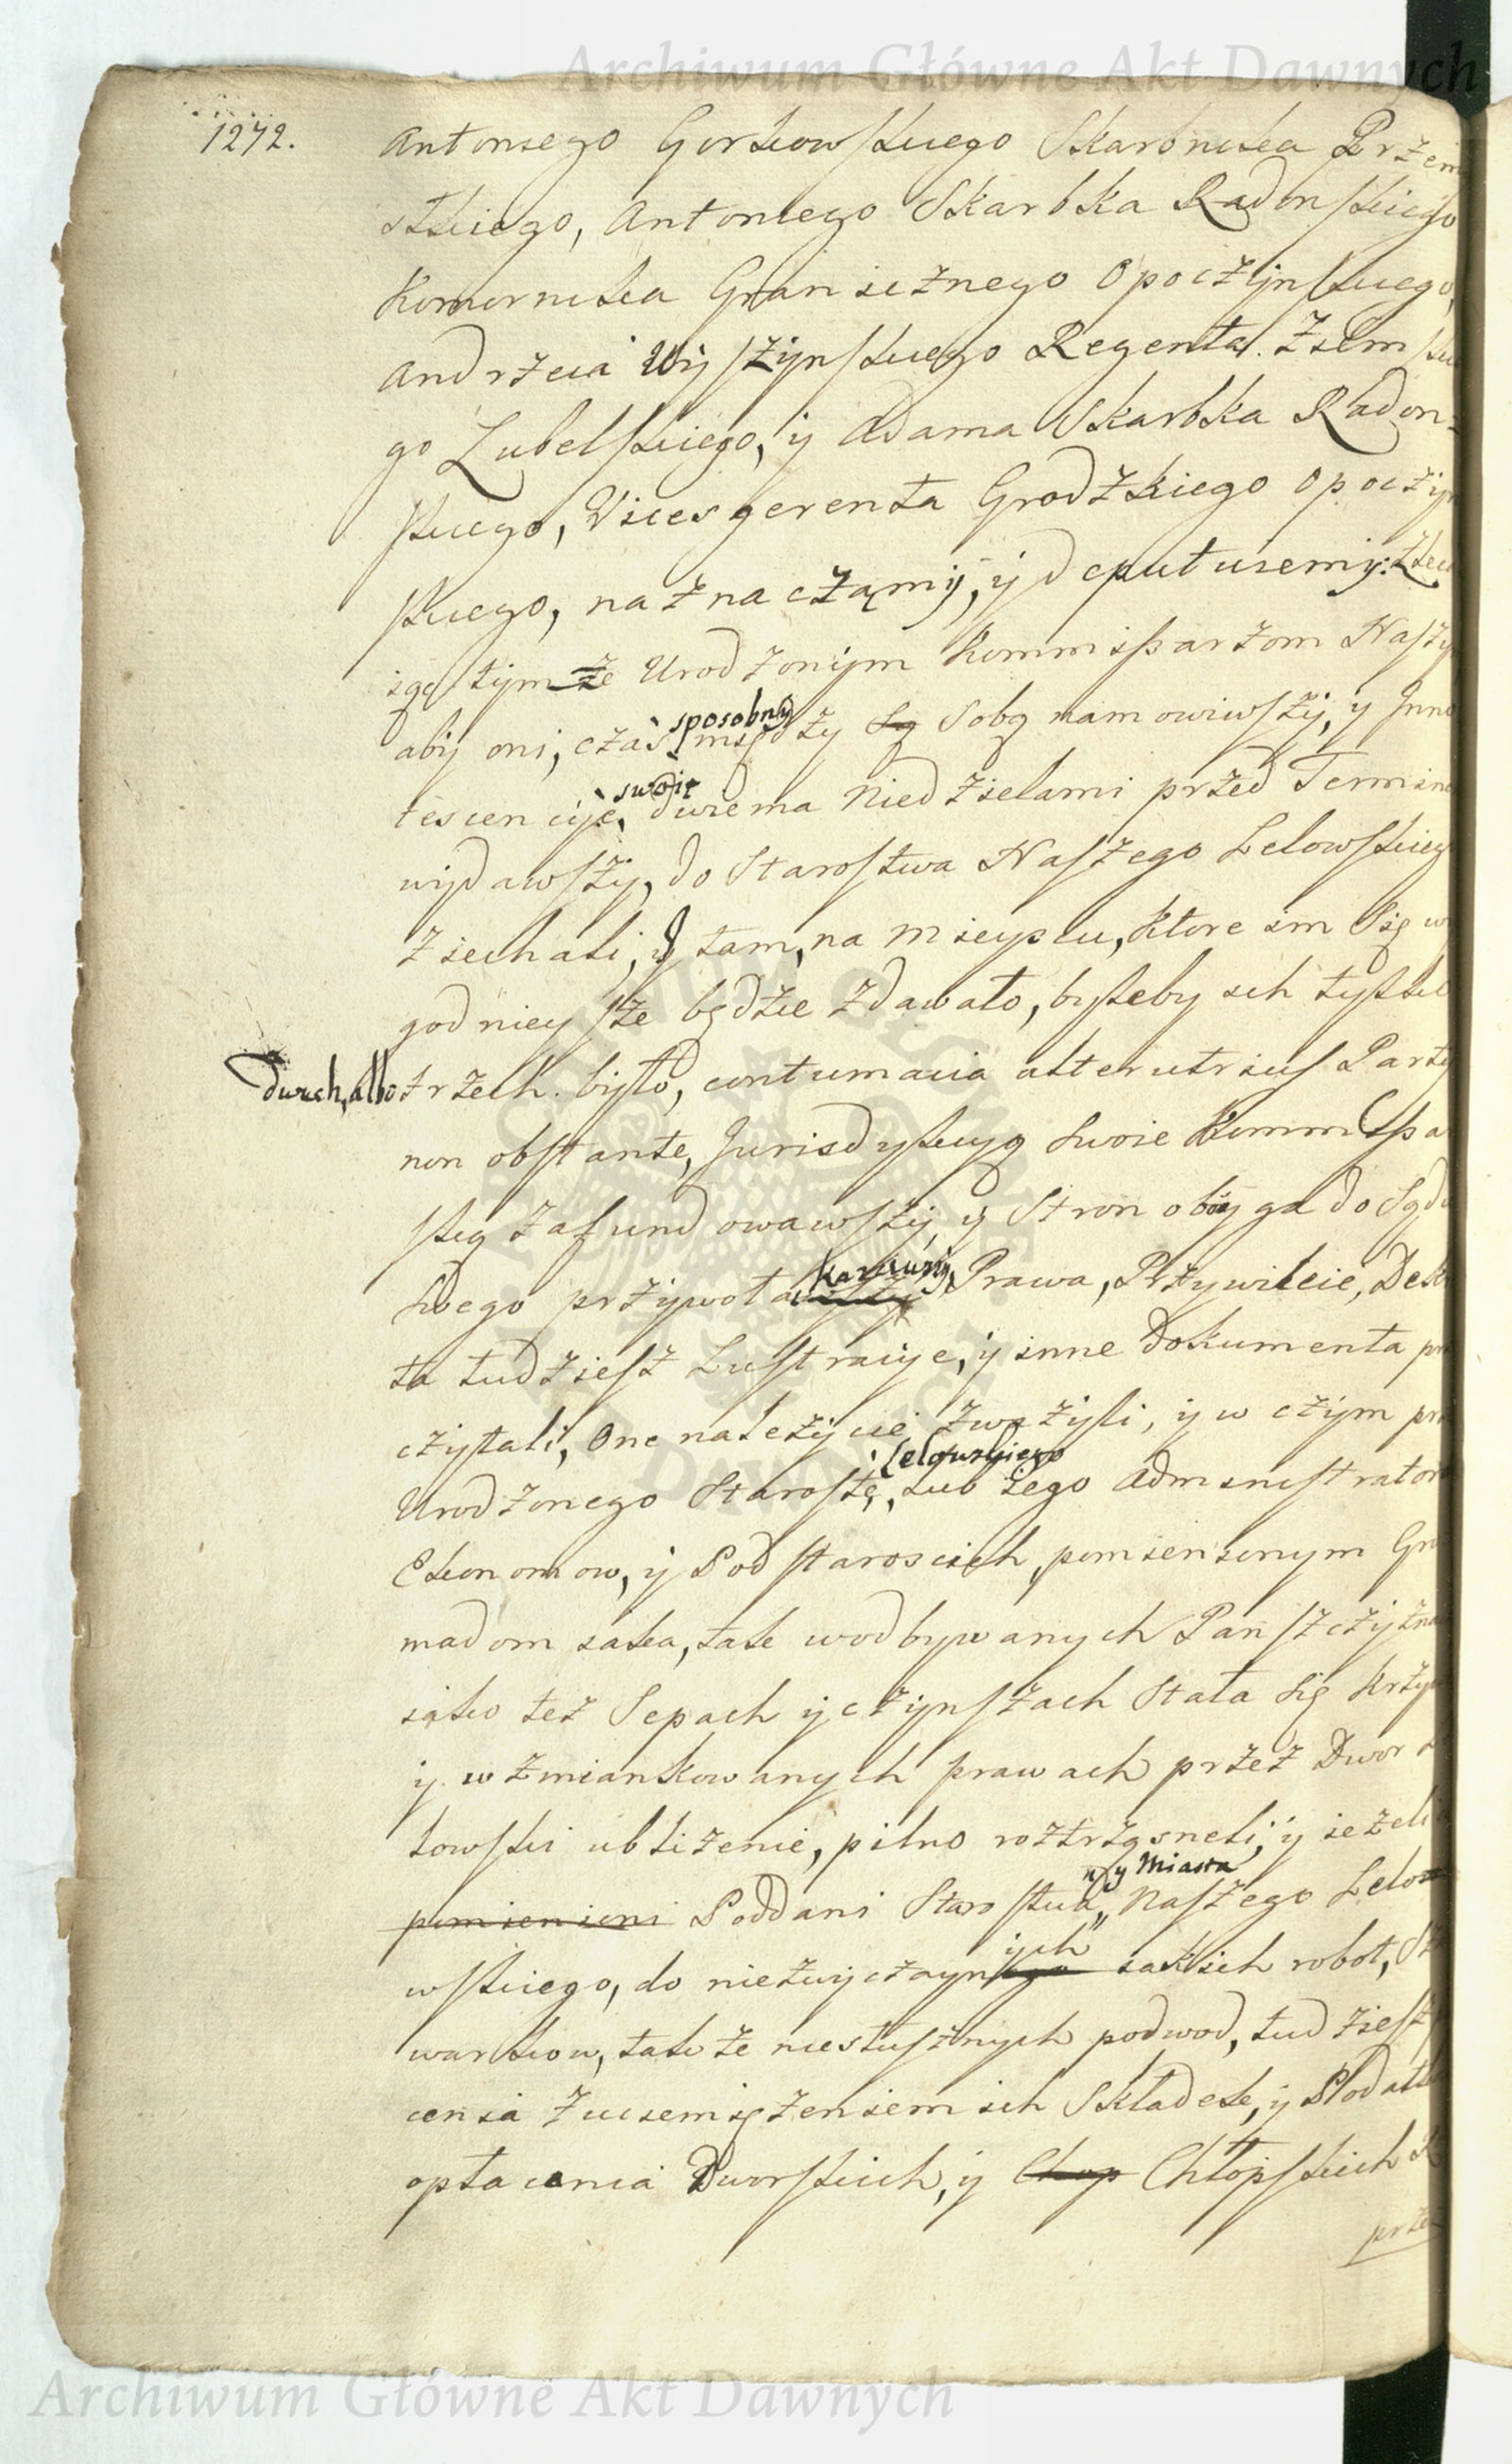 Archiwum Główne Akt Dawnych
1272.
Antoniego Gorkowskiego Skarbnika Przem
slkiego, Antoniego Skarbka Radonskiego
Komornika Granicznego Opoczynskiego,
Andrzeia Wyszynskiego Regenta Ziemski
go Lubelskiego, y Adama Skarbka Radon=
skiego, Vicesgerenta Grodzkiego Opoczyn
skiego, naznaczamy, y deputuiemy: Zlec
iąc tymże Urodzonym Kommissarzom Naszy
sposobny
aby oni, czas między Sobą namowiwszy, y Inno
swoie
tescencyie, dwiema Niedzielami przed Termine
wydawszy, do Starostwa Naszego Lelowskieg
Ziechali, y tam, na mieyscu, ktore im Się wy
godnieysze będzie zdawało, byleby ich tylko
dwuch, albo trzech było, contumacia alterutrius Party
non obstante, Jurisdykcyą Swoie Kommissa
ską zafundowawszy, y Stron oboyga do Sądu
Swego przywołac kazawszy, Prawa, Przywileie, Dekre
ta tudziesz Lustracye, y inne Dokumenta prze
czytali, One należycie zważyli, y w czym prze
Lelowskiego
Urodzonego Starostę, lub iego Administrator
Ekonomow, y Podstaroscich, pomienionym Gro
madom iaka, tak w odbywanych Panszczyzna
iako też Sepach y czynszach Stała Się Krzyw
y wzmiankowanych prawach przez Dwor Le
lowski ubliżenie, pilno roztrząsneli, y ieżeli
y Miasta
pomienieni Poddani Starostwa Naszego Lelo
ych
wskiego, do niezwyczaynego iakich robot, Sz
warkow, także niesłusznych podwod, tudziesz
cenia z uciemiężeniem ich Składek, y Podatk
opłacania Dworskich, y Chop Chłopskich
prze
Archiwum Główne Akt Dawnych